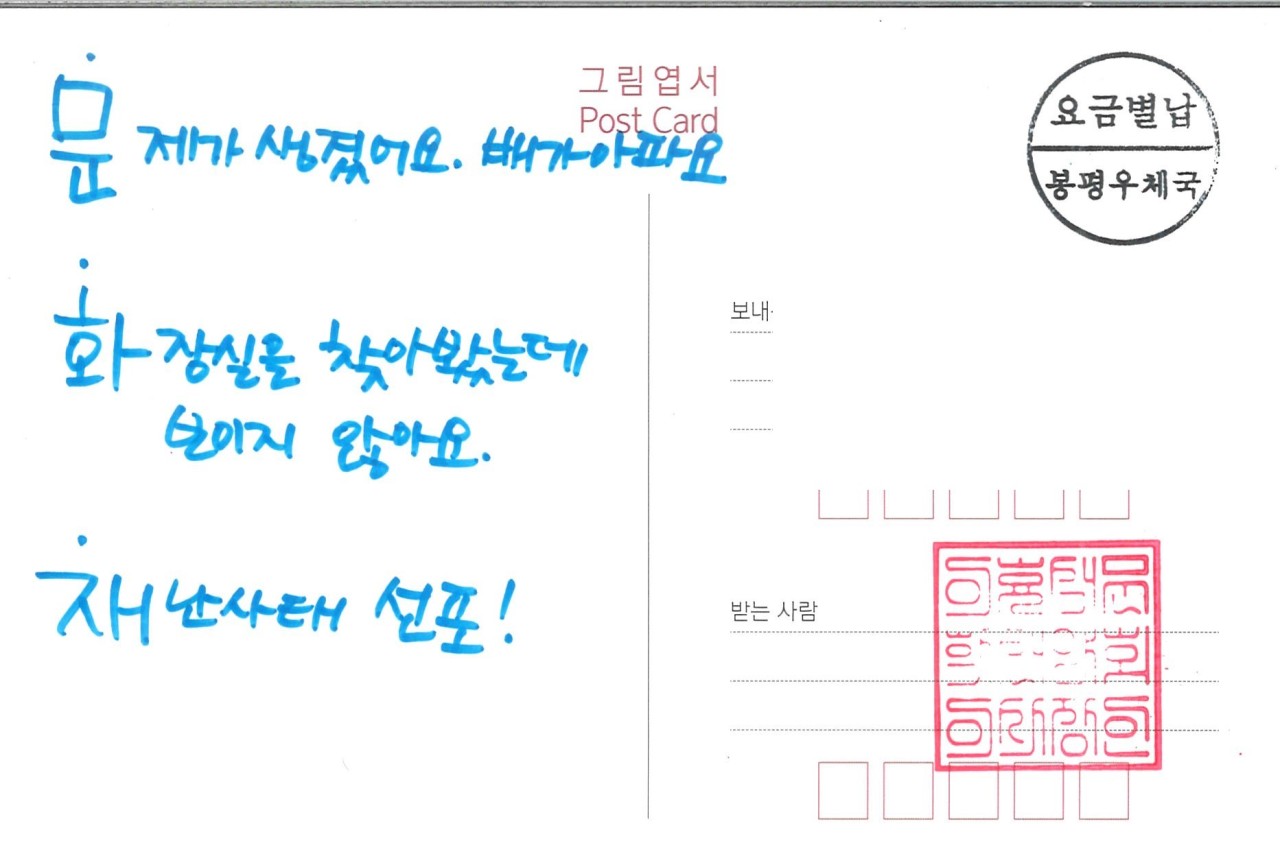 그림엽서
Post Card
요금별납
봉평우체국
문제가 생겼어요. 배가아파요
화장실을 찾아봤는데
보이지 않아요.
재난사태 선포!
보내
받는 사람